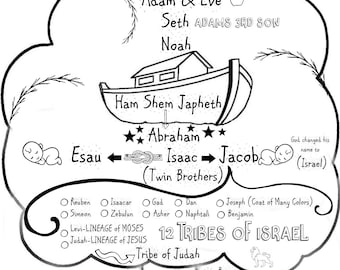 Adam & Eve
Seth ADAMS 3RD SON
Noah
Ham Shem Japheth
Abraham
God changed his name to
(Israel)
Esau Isaac Jacob
(Twin Brothers)
Reuben Isaacar Gad Dan Joseph (Coat of Many Colors)
Simeon Zebulun Asher Naphtali Benjamin
Levi-LINEAGE of MOSES
Judah-LINEAGE of JESUS
12 TRIBES OF ISRAEL
Tribe of Judah